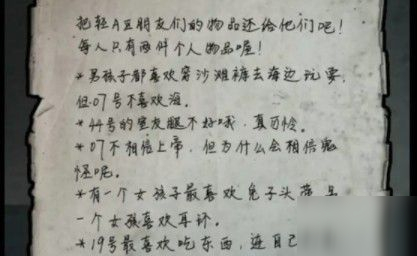 把轻A豆朋友们的物品还给他们吧！
每人只有两件个人物品喔！
*男孩子都喜欢穿沙滩裤去海边玩耍，
但07号不喜欢海。
*44号的室友腿不好哦，真可怜。
*07不相信上帝，但为什么会相信鬼
怪呢。
*有一个女孩子最喜欢兔子头落，另
一个女孩喜欢耳环。
*19号最喜欢吃东西，连自己